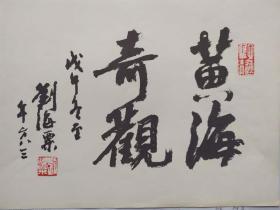 黄海
奇觀
戊午冬至
劉海粟
年八三